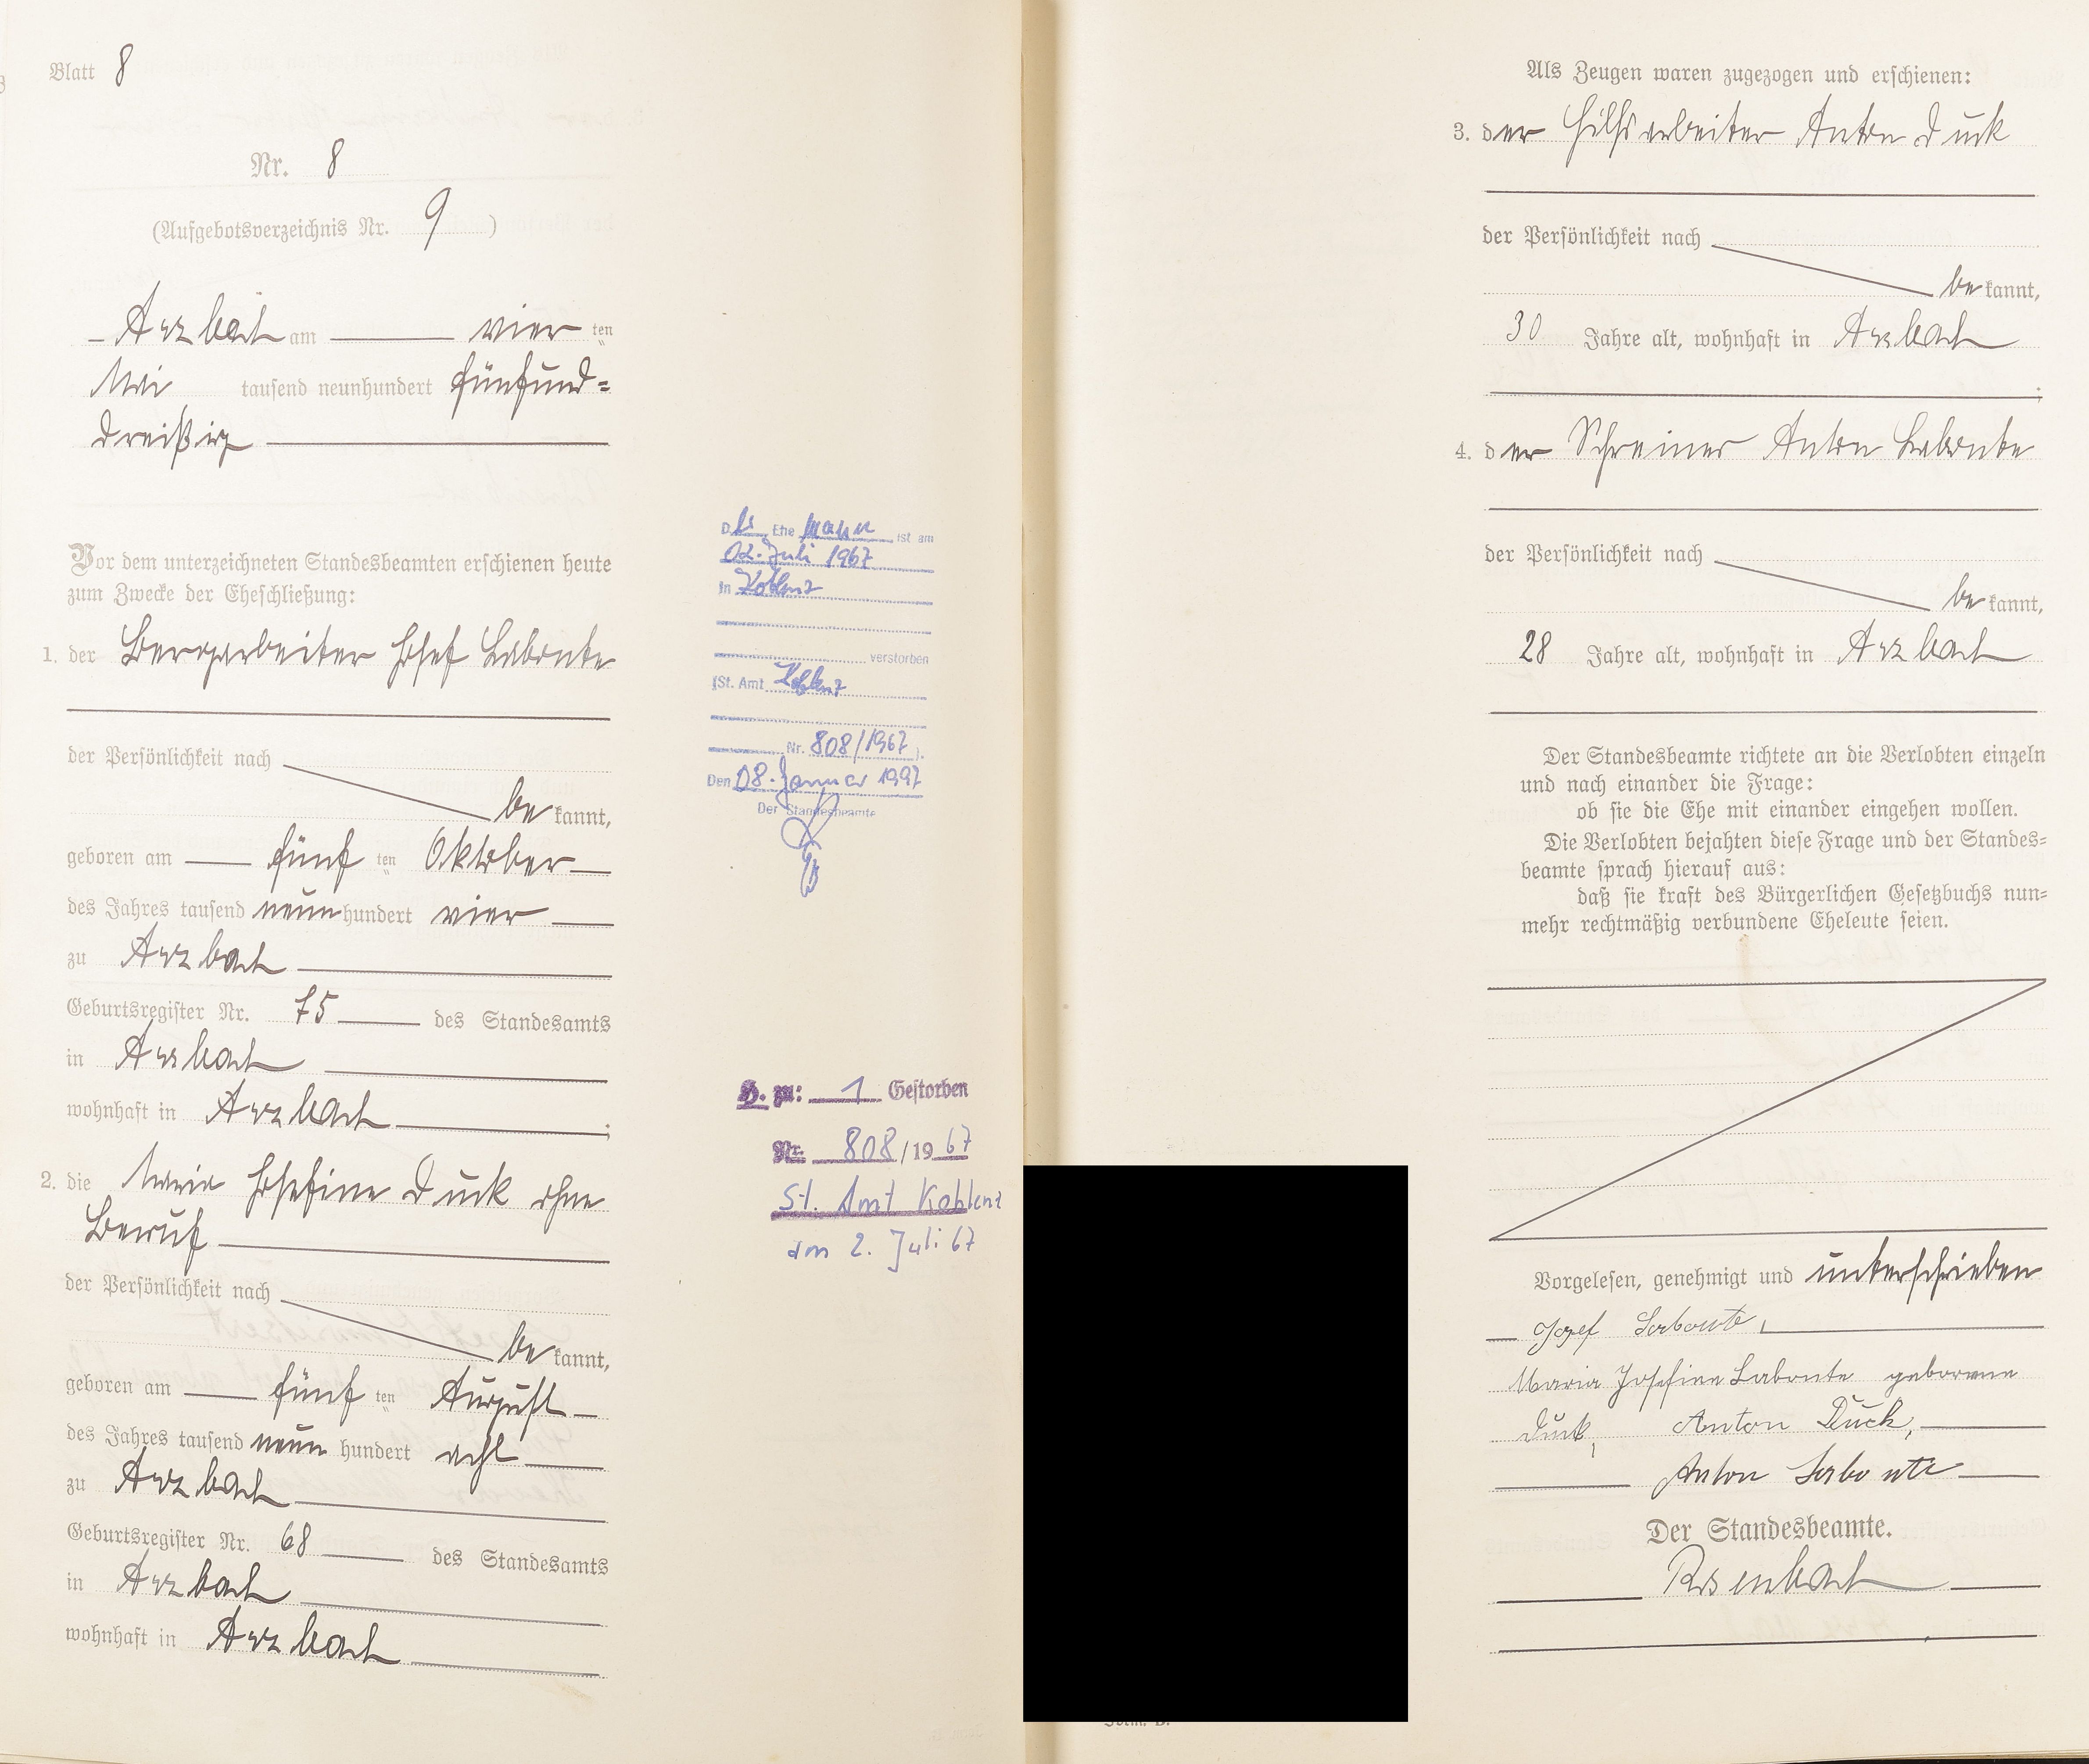 Blatt 8
Nr. 8
(Aufgebotsverzeichnis Nr. 9)
Arzbach am vier ten
Mai tausend neunhundert fünfund=
dreißig
Vor dem unterzeichneten Standesbeamten erschienen heute
zum Zwecke der Eheschließung:
1. der Bergarbeiter Josef Labonte
der Persönlichkeit nach
be kannt,
geboren am fünf ten Oktober
des Jahres tausend neun hundert vier
zu Arzbach
Geburtsregister Nr. 75 des Standesamts
in Arzbach
wohnhaft in Arzbach;
2. die Maria Josefine Duck ohne
Beruf
der Persönlichkeit nach
be kannt,
geboren am fünf ten August
des Jahres tausend neun hundert acht
zu Arzbach
Geburtsregister Nr. 68 des Standesamts
in Arzbach
wohnhaft in Arzbach
Der Ehe mann ist am
02. Juli 1967
in Koblenz
verstorben
(St. Amt Koblenz
Nr. 808/1967).
Den 08. Januar 1997
Der Standesbeamte
H. zu: 1 Gestorben
Nr. 808/1967
St. Amt Koblenz
am 2. Juli 67
Als Zeugen waren zugezogen und erschienen:
3. der Hilfsarbeiter Anton Duck
der Persönlichkeit nach
be kannt,
30 Jahre alt, wohnhaft in Arzbach
;
4. der Schreiner Anton Labonte
der Persönlichkeit nach
be kannt,
28 Jahre alt, wohnhaft in Arzbach
Der Standesbeamte richtete an die Verlobten einzeln
und nach einander die Frage:
ob sie die Ehe mit einander eingehen wollen.
Die Verlobten bejahten diese Frage und der Standes=
beamte sprach hierauf aus:
daß sie kraft des Bürgerlichen Gesetzbuchs nun=
mehr rechtmäßig verbundene Eheleute seien.
Vorgelesen, genehmigt und unterschrieben
Josef Labonte,
Maria Josefine Labonte geborene
Duck, Anton Duck,
Anton Labonte
Der Standesbeamte.
Rosenbach